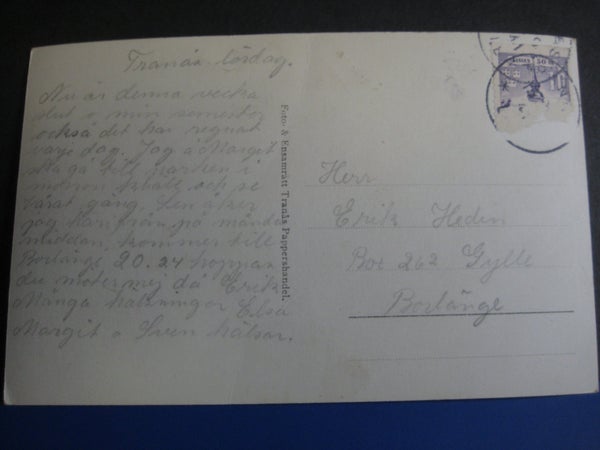 Tranås lördag.
Nu är denna vecka
slut o min semester
också det har regnat
varje dag. Jag o Margit
ska gå till parken i
morron kväll och se
gång, Sen åker
jag härifrån på måndag
middan, kommer till
Borlänge 20.24 hoppas
du möter mej då Erik
Många hälsningar Elsa
Margit o Sven hälsar.
Foto- & Ensamrätt Tranås Pappershandel.
Herr
Erik Hedin
Box 262 Gylle
Borlänge